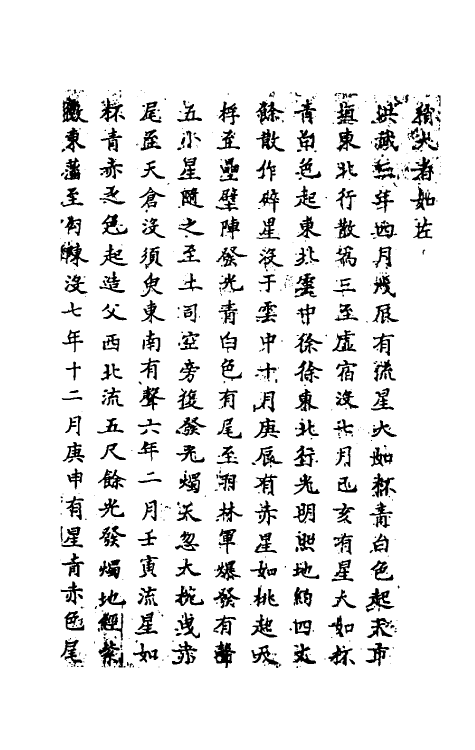 殞大者如左
洪武三年四月戊辰有流星大如杯青白色起天市
垣東北行散爲三至虛宿沒七月己亥有星大如杯
青白色起東北雲中徐徐東北行光明照地約四丈
餘散作碎星沒于雲中十月庚辰有赤星如桃起天
桴至壘壁陣發光青白色有尾至羽林軍爆發有聲
五小星隨之至土司空旁復發光燭天忽大如碗赤
尾至天倉沒須臾東南有聲六年二月壬寅流星如
杯青赤色起造父西北流五尺餘光發燭地經紫
微東藩至勾陳沒七年十二月庚申有星青赤色尾